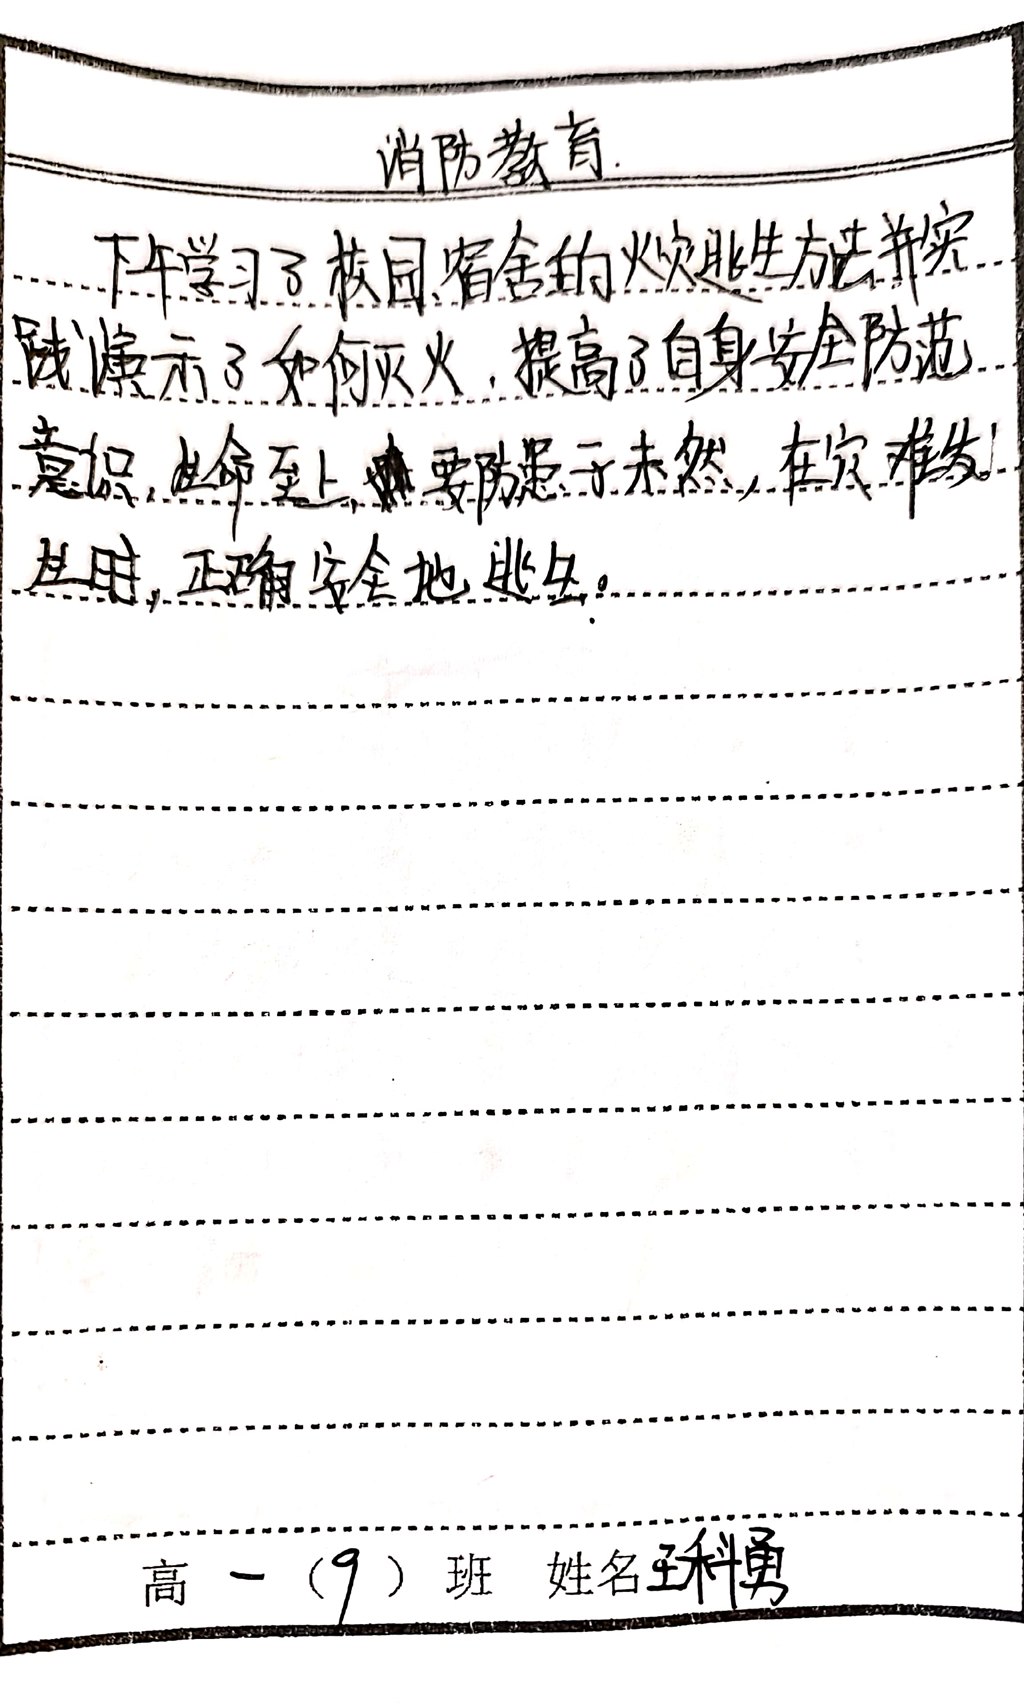 消防教育.
下午学习了校园、宿舍的火灾逃生方法并实
践演示了如何灭火，提高了自身安全防范
意识，生命至上，要防患于未然，在灾难发
生时，正确安全地逃生。
高一（9）班 姓名王科勇